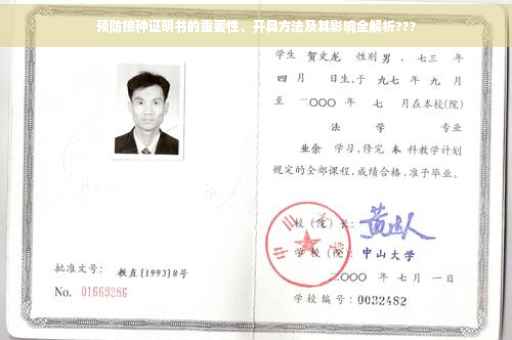 预防接种证明书的重要性、开具方法及其影响全解析???
学生 贺文龙 性别 男 、七三 年
四 月 日生,于 九七 年 九 月
至 二〇〇〇 年 七 月在本校(院)
法 学 专业
业余 学习,修完 本 科教学计划
规定的全部课程,成绩合格,准予毕业。
校(院)长:
学 校(院): 中山大学
批准文号: 教直(1993)8号
二〇〇〇 年 七 月 一日
No. 01669286
学校编号: 0032482